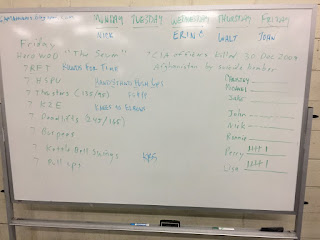 MONDAY TUESDAY WEDNESDAY THURSDAY FRIDAY
NICK ERIN C WALT JOHN
Friday
Hero WOD "The Seven" "CIA officers killed 30 Dec 2009
Afghanistan by suicide bomber
7 RFT Rounds For Time
7 HSPU Handstand Push Ups
7 Thrusters (135/95)
7 K2E Knees to Elbows
7 Deadlifts (245/165)
7 Burpees
7 Kettle Bell Swings
7 Pull ups
Thursday
Michael
Jake
John
Nick
Ronnie
Percy
Lisa